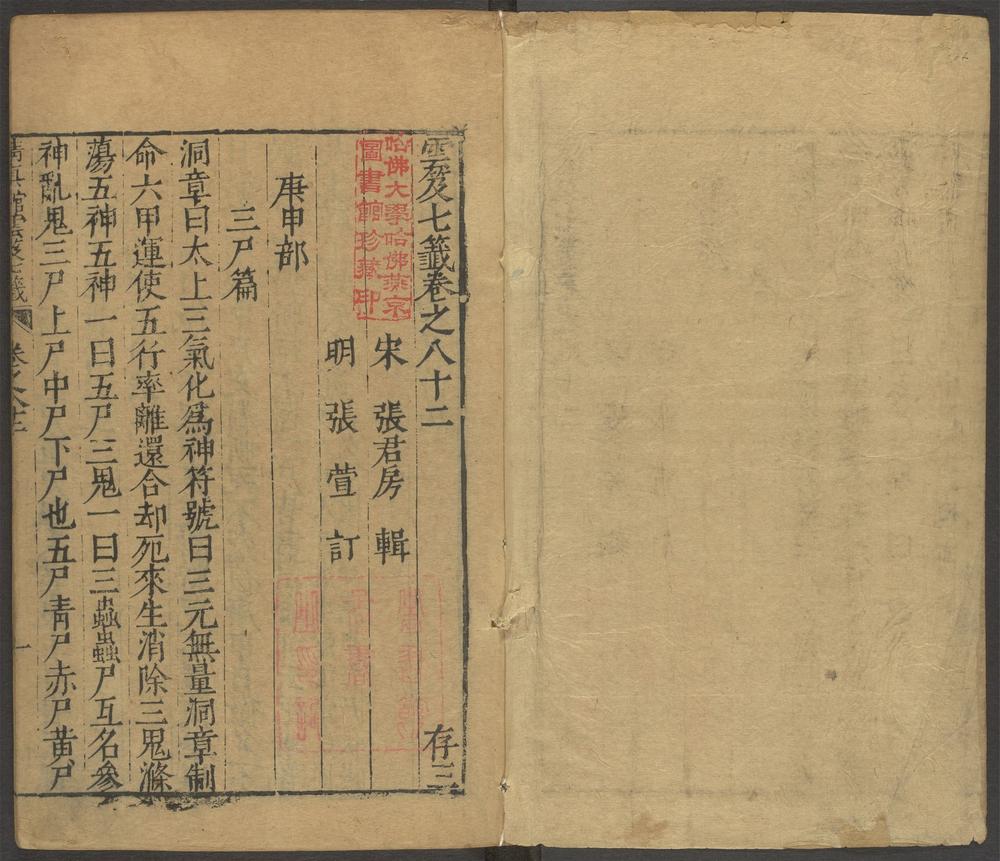 雲笈七籤卷之八十二 存三
哈佛大學哈佛燕京
圖書館珍藏印
宋 張君房 輯
明 張萱 訂
庚申部
三尸篇
洞章曰太上三氣化爲神符號曰三元無量洞章制
命六甲運使五行率離還合却死來生消除三鬼滌
蕩五神五神一曰五尸三鬼一曰三蟲蟲尸互名參
神亂鬼三尸上尸中尸下尸也五尸青尸赤尸黄尸
卷之八十二 一